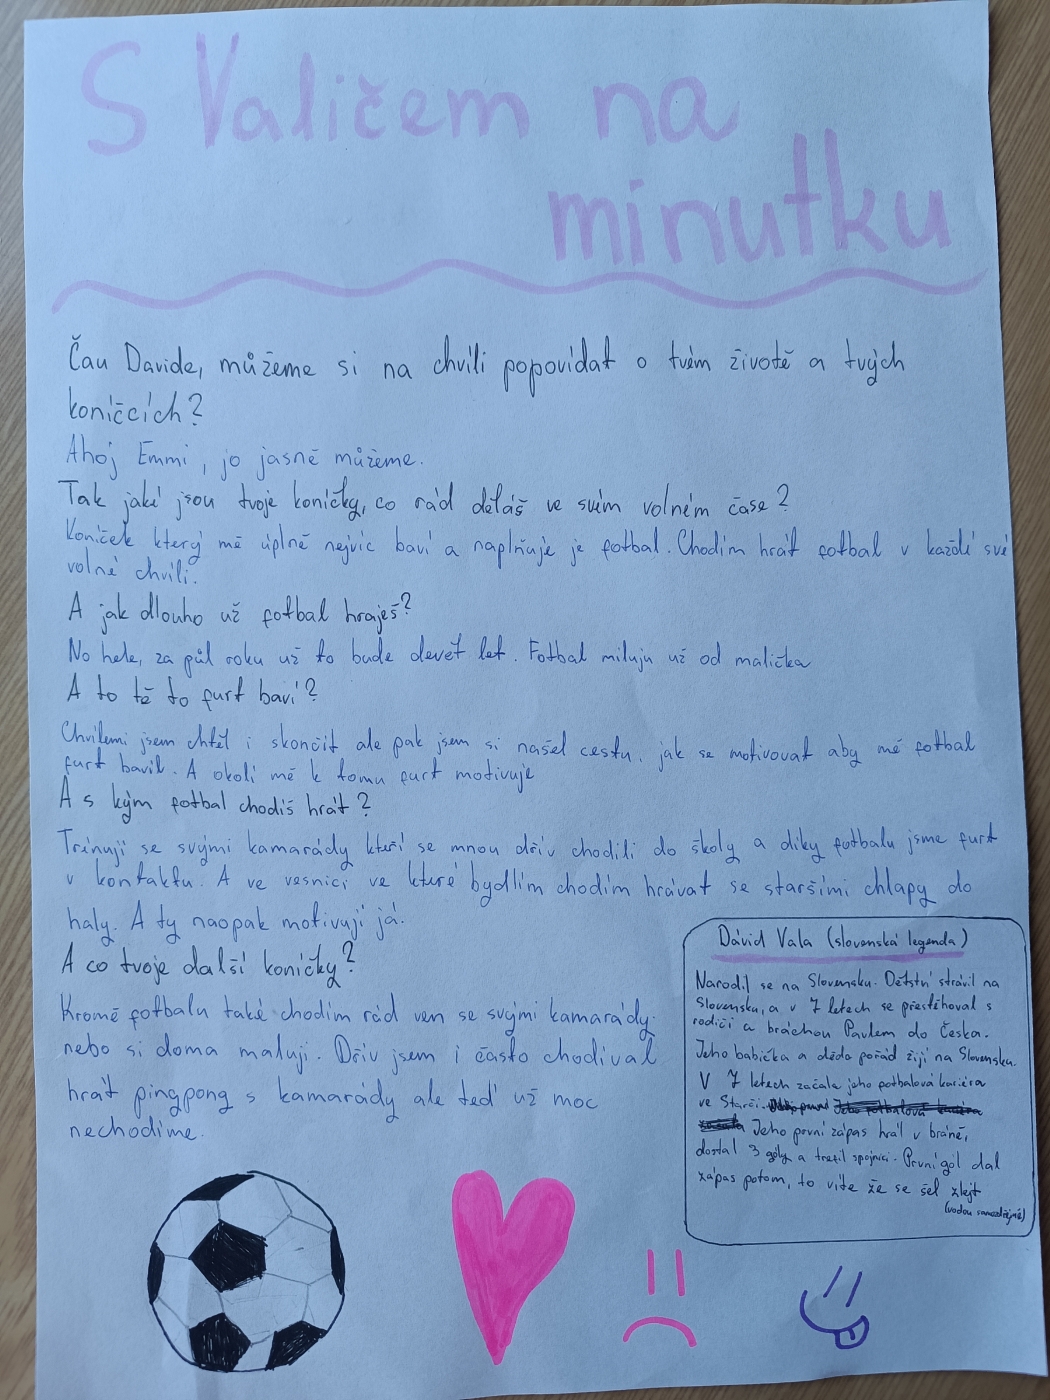 S Valičem na
minutku
Čau Davide, můžeme si na chvíli popovídat o tvém životě a tvých
koníčcích?
Ahoj Emmi, jo jasně můžeme.
Tak jaké jsou tvoje koníčky, co rád děláš ve svém volném čase?
Koníček který mě úplně nejvíc baví a naplňuje je fotbal. Chodím hrát fotbal v každé své
volné chvíli.
A jak dlouho už fotbal hraješ?
No hele, za půl roku už to bude devět let. Fotbal miluju už od malička
A to tě to furt baví?
Chvílemi jsem chtěl i skončit ale pak jsem si našel cestu, jak se motivovat aby mě fotbal
furt bavil. A okolí mě k tomu furt motivuje
A s kým fotbal chodíš hrát?
Trénuji se svými kamarády kteří se mnou dřív chodili do školy a díky fotbalu jsme furt
v kontaktu. A ve vesnici ve které bydlím chodím hrávat se staršími chlapy do
haly. A ty naopak motivuji já.
A co tvoje další koníčky?
Kromě fotbalu také chodím rád ven se svými kamarády
nebo si doma maluji. Dřív jsem i často chodíval
hrát pingpong s kamarády ale teď už moc
nechodíme.
Dávid Vala (slovenská legenda)
Narodil se na Slovensku. Dětství strávil na
Slovensku, a v 7 letech se přestěhoval s
rodiči a bráchou Pavlem do Česka.
Jeho babička a děda pořád žijí na Slovensku.
V 7 letech začala jeho fotbalová kariéra
ve Starči.
Jeho první zápas hrál v bráně,
dostal 3 góly a trefil spojnici. První gól dal
zápas potom, to víte že se šel zlejt
(vodou samozřejmě)